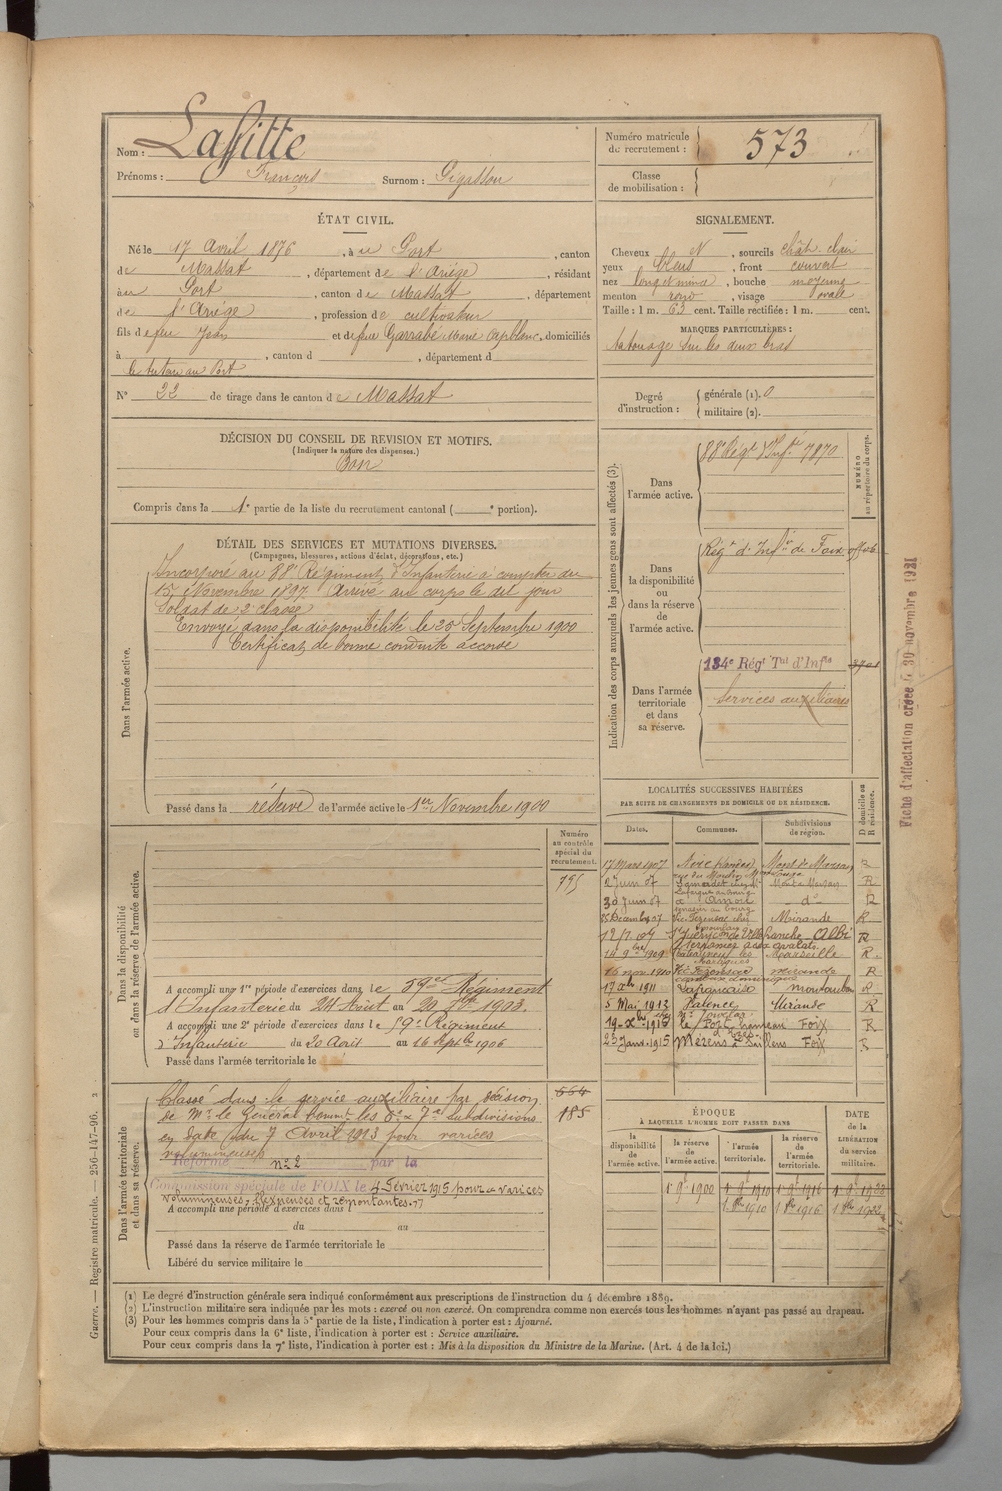 Nom : Laffitte
Prénoms : François Surnom : Gigassou
Numéro matricule du recrutement : 573
Classe de mobilisation :
ÉTAT CIVIL.
Né le 17 Avril 1876, à u Port, canton
de Massat, département de l'Ariége, résidant
à Port, canton de Massat, département
de l'Ariége, profession de cultivateur
fils de feu Jean et de feue Garrabé Marie, domiciliés
à , canton d , département d
le tuteur au Port
N° 22 de tirage dans le canton de Massat
SIGNALEMENT.
Cheveux N, sourcils chât. clair
yeux bleus, front couvert
nez long et mince, bouche moyenne
menton rond, visage ovale
Taille : 1 m. 63 cent. Taille rectifiée : 1 m. cent.
MARQUES PARTICULIÈRES :
tatouage sur les deux bras
Degré d'instruction : générale (1). 0
militaire (2).
DÉCISION DU CONSEIL DE REVISION ET MOTIFS.
(Indiquer la nature des dispenses.)
Bon
Compris dans la 1e partie de la liste du recrutement cantonal ( e portion).
DÉTAIL DES SERVICES ET MUTATIONS DIVERSES.
(Campagnes, blessures, actions d'éclat, décorations, etc.)
Dans l'armée active.
Incorporé au 88e Régiment d'Infanterie à compter du
15 Novembre 1897. Arrivé au corps le dit jour
Soldat de 2e classe
Envoyé dans la disponibilité le 25 Septembre 1900
Certificat de bonne conduite accordé
Passé dans la réserve de l'armée active le 1er Novembre 1900
Indication des corps auxquels les jeunes gens sont affectés (3).
NUMÉRO au répertoire du corps.
Dans l'armée active.
88e Régt d'Infie 7870
Dans la disponibilité ou dans la réserve de l'armée active.
Régt d'Infie de Foix
Dans l'armée territoriale et dans sa réserve.
134e Régt Tal d'Infie
Services auxiliaires
Fiche d'affectation créée le 30 novembre 1921
LOCALITÉS SUCCESSIVES HABITÉES
PAR SUITE DE CHANGEMENTS DE DOMICILE OU DE RÉSIDENCE.
Dates. Communes. Subdivisions de région. D domicile ou R résidence.
17 Mars 1907 Mont de Marsan R
2 Juin 07 Mont de Marsan R
30 Juin 07 Amou do R
25 Décemb 07 Vic Fezensac chez Mirande R
12/7 09 Villefranche Albi R
14 9bre 1909 Chateauneuf les Martigues Marseille R
16 nov. 1910 Vic Fezensac mirande R
17 Xbre 1911 Lafrançaise montauban R
5 Mai 1913 Valence Mirande R
19 Xbre 1915 le Port hameau Foix R
23 Janv. 1915 Mézens Foix R
Dans la disponibilité ou dans la réserve de l'armée active.
Numéro au contrôle spécial du recrutement.
795
A accompli une 1re période d'exercices dans le 59me Régiment
d'Infanterie du 24 Août au 20 7bre 1903.
A accompli une 2e période d'exercices dans le 59e Régiment
d'Infanterie du 20 Août au 16 Septbre 1906
Passé dans l'armée territoriale le
Dans l'armée territoriale et dans sa réserve.
Classé dans le service auxiliaire par décision 554
de Mr le Général Commt les 6e & 7e subdivisions 185
en date du 7 Avril 1913 pour varices
volumineuses
Réformé n° 2 par la
Commission spéciale de FOIX le 4 Février 1915 pour « varices
volumineuses, flexueuses et remontantes. »
A accompli une période d'exercices dans l
du au
Passé dans la réserve de l'armée territoriale le
Libéré du service militaire le
ÉPOQUE
À LAQUELLE L'HOMME DOIT PASSER DANS
DATE de la LIBÉRATION du service militaire.
la disponibilité de l'armée active. la réserve de l'armée active. l'armée territoriale. la réserve de l'armée territoriale.
1er 9bre 1900 1er 9bre 1910 1er 9bre 1916 1er 9bre 1922
1er 8bre 1910 1er 8bre 1916 1er 8bre 1922
(1) Le degré d'instruction générale sera indiqué conformément aux prescriptions de l'instruction du 4 décembre 1889.
(2) L'instruction militaire sera indiquée par les mots : exercé ou non exercé. On comprendra comme non exercés tous les hommes n'ayant pas passé au drapeau.
(3) Pour les hommes compris dans la 5e partie de la liste, l'indication à porter est : Ajourné.
Pour ceux compris dans la 6e liste, l'indication à porter est : Service auxiliaire.
Pour ceux compris dans la 7e liste, l'indication à porter est : Mis à la disposition du Ministre de la Marine. (Art. 4 de la loi.)
Guerre. — Registre matricule. — 256-147-96. 2